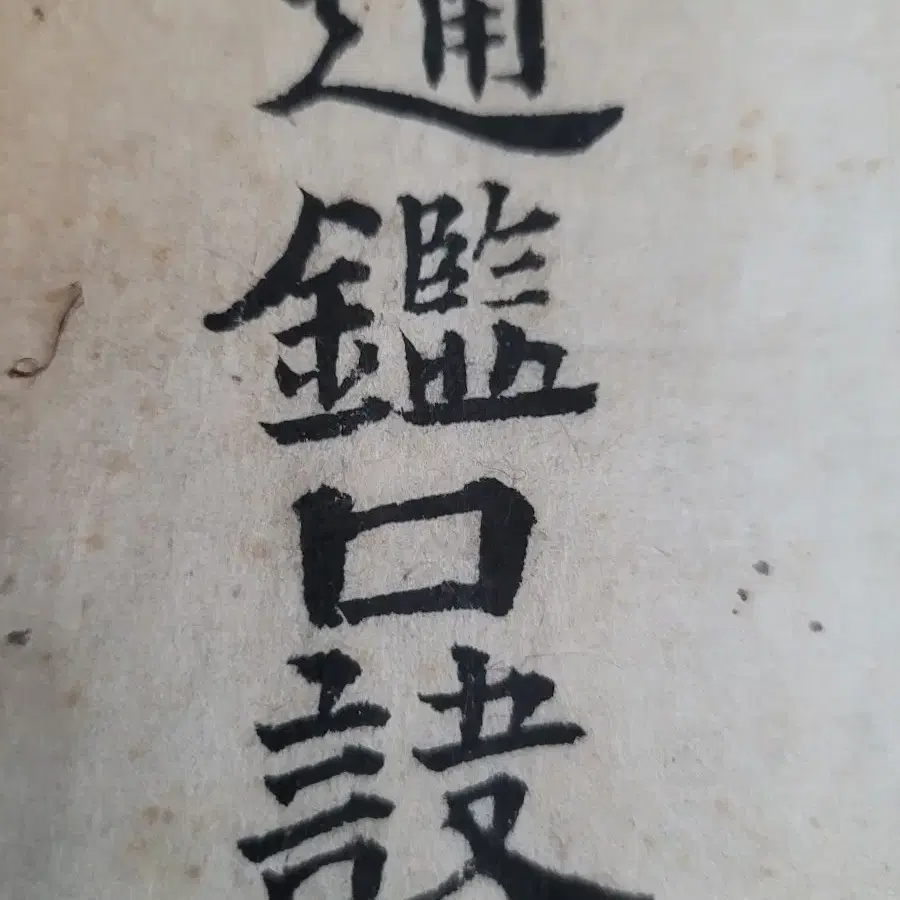 通鑑口訣